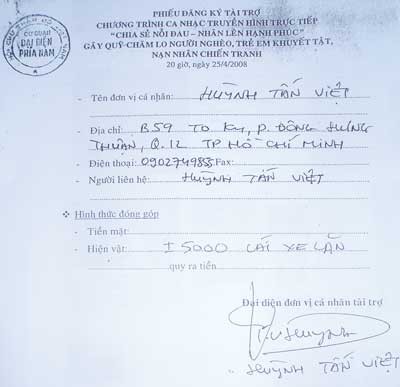 PHIẾU ĐĂNG KÝ TÀI TRỢ
CHƯƠNG TRÌNH CA NHẠC TRUYỀN HÌNH TRỰC TIẾP
"CHIA SẺ NỖI ĐAU – NHÂN LÊN HẠNH PHÚC"
GÂY QUỸ-CHĂM LO NGƯỜI NGHÈO, TRẺ EM KHUYẾT TẬT,
NẠN NHÂN CHIẾN TRANH
20 giờ, ngày 25/4/2008
CƠ QUAN
ĐẠI DIỆN
PHÍA NAM
- Tên đơn vị cá nhân: HUỲNH TẤN VIỆT
- Địa chỉ: B59 TÔ KÝ, P. ĐÔNG HƯNG
THUẬN, Q.12 TP HỒ CHÍ MINH
- Điện thoại: 090274988 Fax:
- Người liên hệ: HUỲNH TẤN VIỆT
❖ Hình thức đóng góp
- Tiền mặt:
- Hiện vật: 15000 CÁI XE LĂN
quy ra tiền
Đại diện đơn vị cá nhân tài trợ
HUỲNH TẤN VIỆT